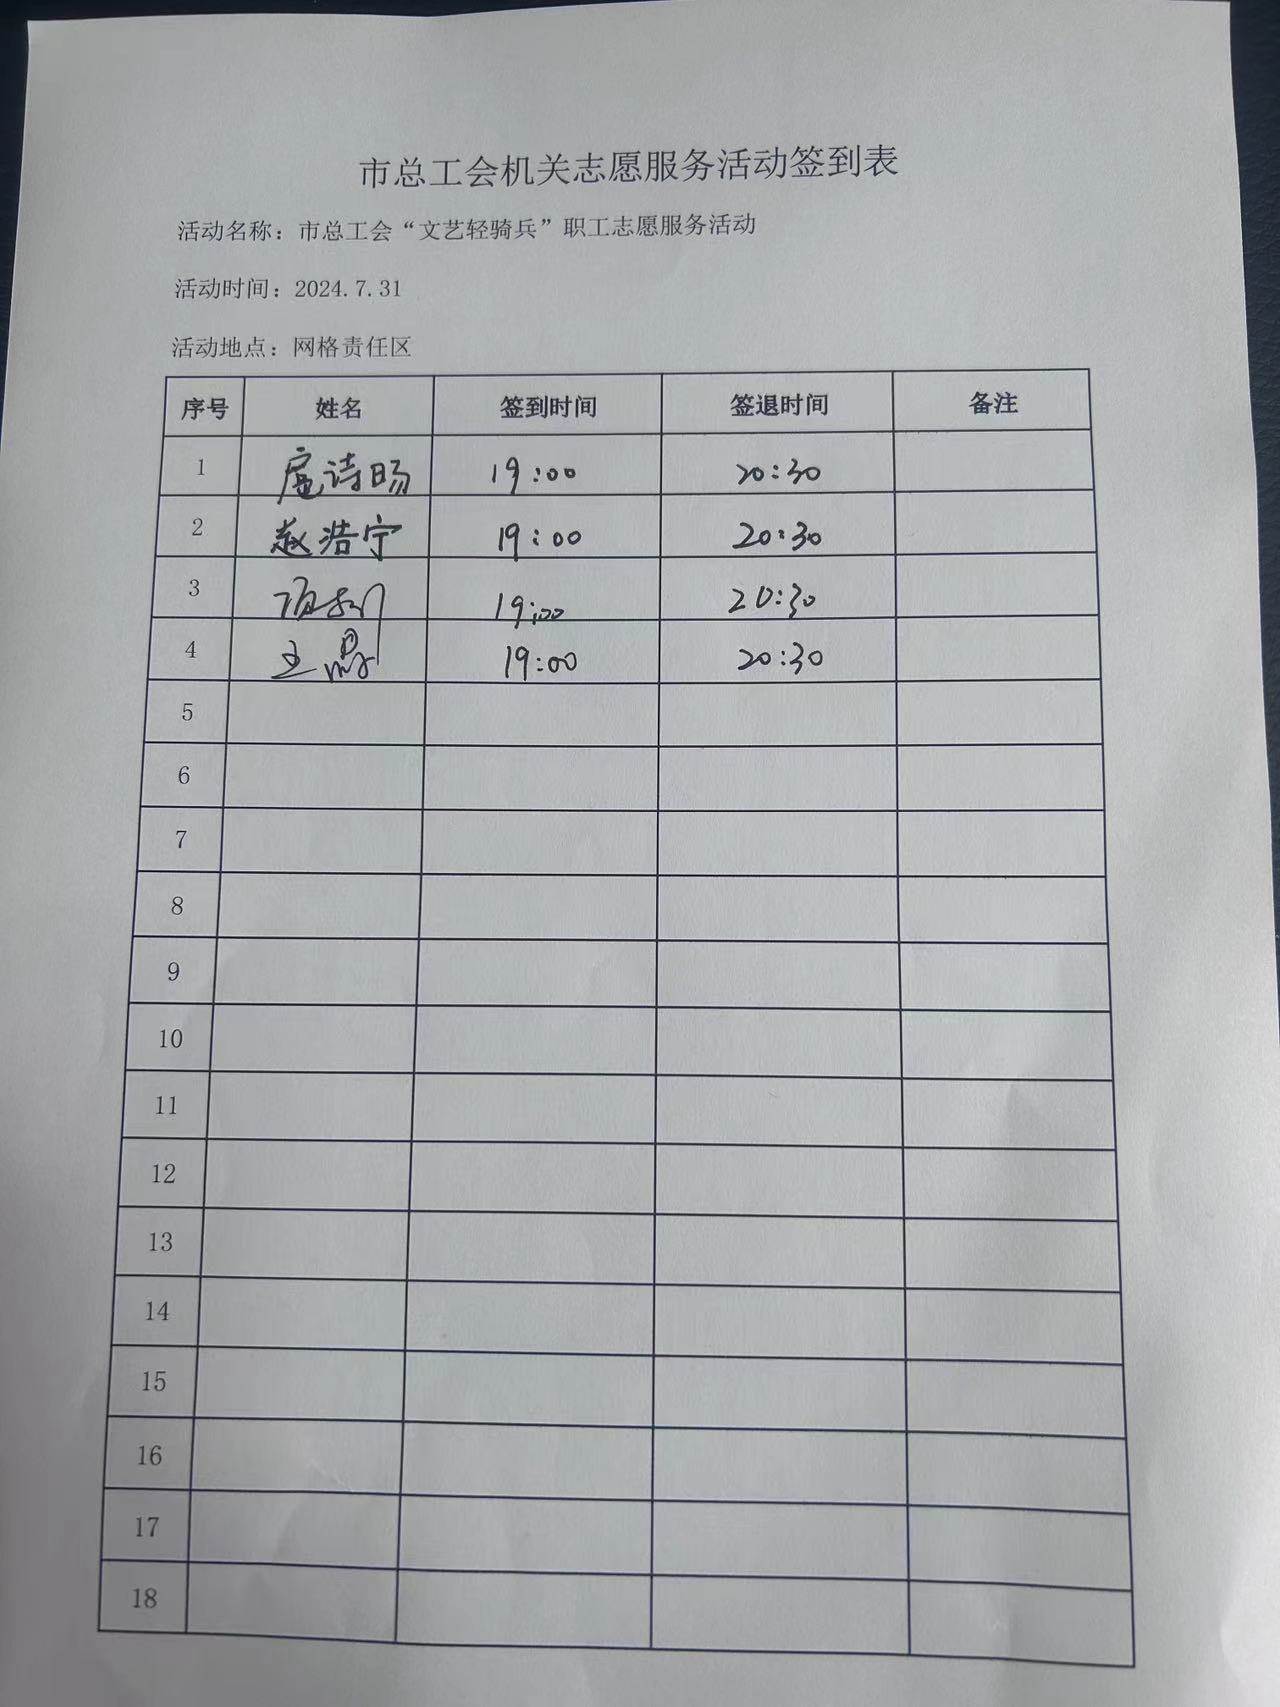 市总工会机关志愿服务活动签到表
活动名称：市总工会“文艺轻骑兵”职工志愿服务活动
活动时间：2024.7.31
活动地点：网格责任区
序号 姓名 签到时间 签退时间 备注
1 诗旸 19:00 20:30
2 赵浩宁 19:00 20:30
3 19:00 20:30
4 王 19:00 20:30
5
6
7
8
9
10
11
12
13
14
15
16
17
18